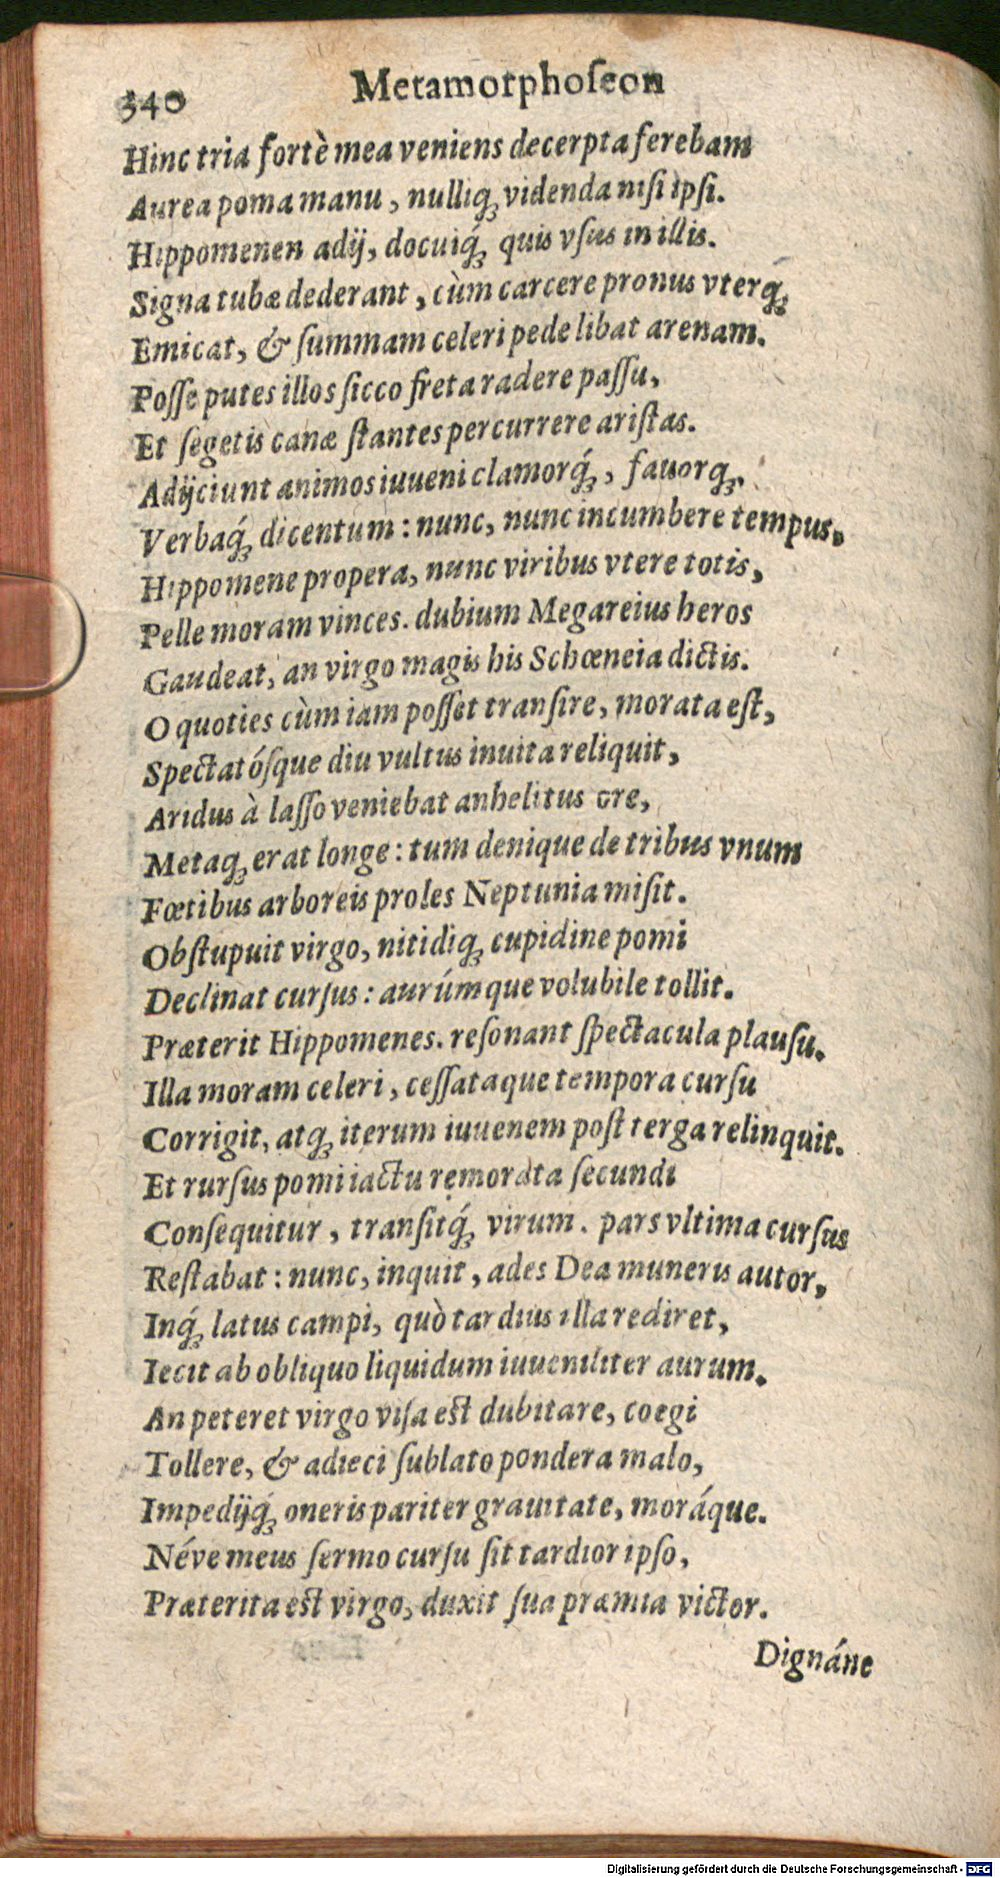 340 Metamorphoſeon
Hinc tria fortè mea veniens decerpta ferebam
Aurea poma manu, nulliq́ꝫ videnda niſi ipſi.
Hippomenen adij, docuiq́ꝫ quis vſus in illis.
Signa tubæ dederant, cùm carcere pronus vterq́ꝫ
Emicat, & ſummam celeri pede libat arenam.
Poſſe putes illos ſicco freta radere paſſu,
Et ſegetis canæ ſtantes percurrere ariſtas.
Adijciunt animos iuueni clamorq́ꝫ, fauorqꝫ,
Verbaq́ꝫ dicentum: nunc, nunc incumbere tempus,
Hippomene propera, nunc viribus vtere totis,
Pelle moram vinces. dubium Megareius heros
Gaudeat, an virgo magis his Schœneia dictis.
O quoties cùm iam poſſet tranſire, morata eſt,
Spectatóſque diu vultus inuita reliquit,
Aridus à laſſo veniebat anhelitus ore,
Metaqꝫ erat longe: tum denique de tribus vnum
Fœtibus arboreis proles Neptunia miſit.
Obſtupuit virgo, nitidiqꝫ cupidine pomi
Declinat curſus: aurúmque volubile tollit.
Præterit Hippomenes. reſonant ſpectacula plauſu.
Illa moram celeri, ceſſataque tempora curſu
Corrigit, atqꝫ iterum iuuenem poſt terga relinquit.
Et rurſus pomi iactu remorata ſecundi
Conſequitur, tranſitq́ꝫ virum. pars vltima curſus
Reſtabat: nunc, inquit, ades Dea muneris autor,
Inq́ꝫ latus campi, quò tardius illa rediret,
Iecit ab obliquo liquidum iuueniliter aurum.
An peteret virgo viſa eſt dubitare, coegi
Tollere, & adieci ſublato pondera malo,
Impedijq́ꝫ oneris pariter grauitate, moráque.
Néve meus ſermo curſu ſit tardior ipſo,
Præterita eſt virgo, duxit ſua præmia victor.
Dignáne
Digitalisierung gefördert durch die Deutsche Forschungsgemeinschaft - DFG